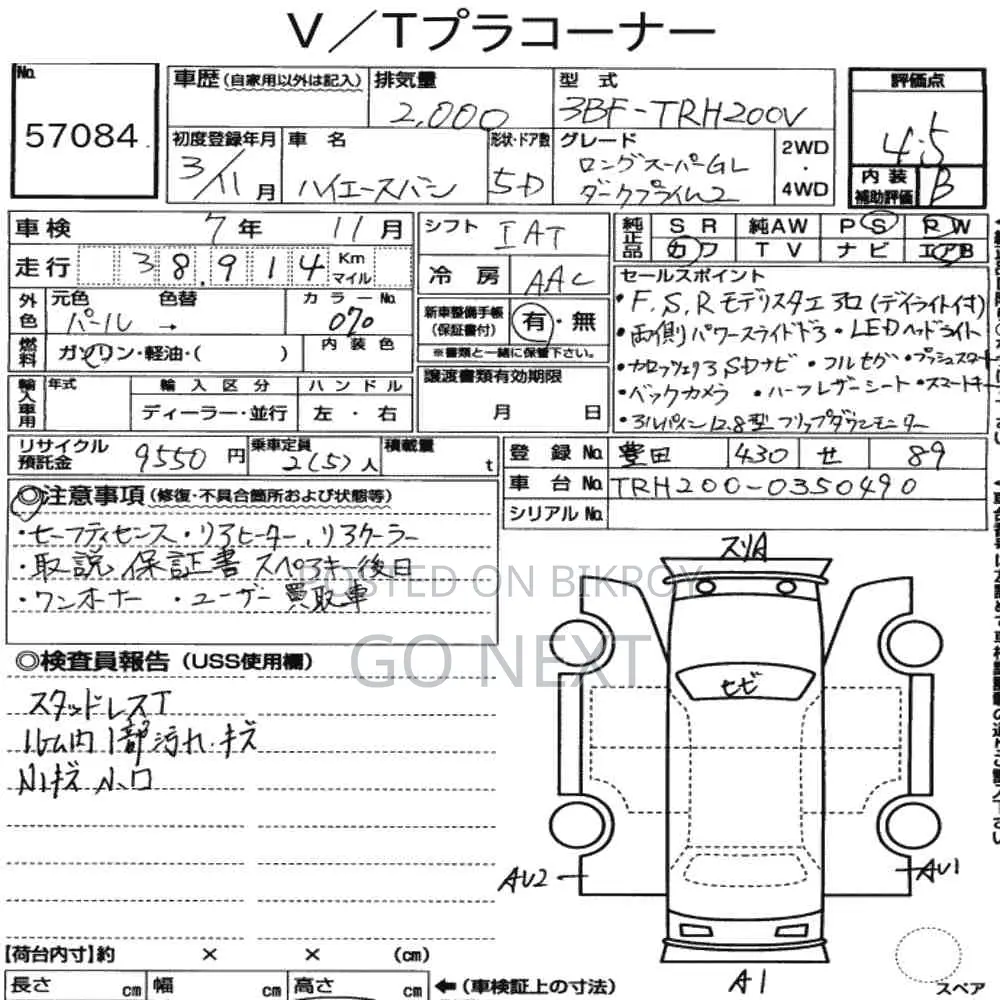 V／Tプラコーナー
No.
57084
車歴(自家用以外は記入)
排気量
2,000
型式
3BF-TRH200V
評価点
4.5
初度登録年月
3/11月
車名
ハイエースバン
形状・ドア数
5-D
グレード
ロングスーパーGL
ダークプライム2
2WD
・
4WD
内装
補助評価
B
車検
7年 11月
シフト
IAT
純正品
SR 純AW PS RW
カワ TV ナビ エアB
走行
38,914
Km
マイル
冷房
AAC
セールスポイント
・F,S,Rモデリスタエアロ(デイライト付)
・両側パワースライドドア ・LEDヘッドライト
・カロッツェリアSDナビ ・フルセグ ・プッシュスタート
・バックカメラ ・ハーフレザーシート ・スマートキー
・アルパイン12.8型フリップダウンモニター
外色
元色 色替
パール →
カラーNo.
070
内装色
新車整備手帳
(保証書付)
有・無
※書類と一緒に保管下さい。
燃料
ガソリン・軽油・( )
輸入車用
年式
輸入区分
ハンドル
ディーラー・並行
左・右
譲渡書類有効期限
月 日
リサイクル
預託金
9550円
乗車定員
2(5)人
積載量
t
登録No.
豊田 430 せ 89
車台No.
TRH200-0350490
シリアルNo.
◎注意事項(修復・不具合箇所および状態等)
・セーフティセンス・リアヒーター、リアクーラー
・取説 保証書 スペアキー後日
・ワンオーナー ・ユーザー買取車
POSTED ON BIKROY
GO NEXT
◎検査員報告(USS使用欄)
スタッドレスT
ルーム内1部汚れ・キズ
スリA
セビ
AU2
AU1
A1
【荷台内寸】約 × × (cm)
長さ cm 幅 cm 高さ cm ←(車検証上の寸法)
スペア